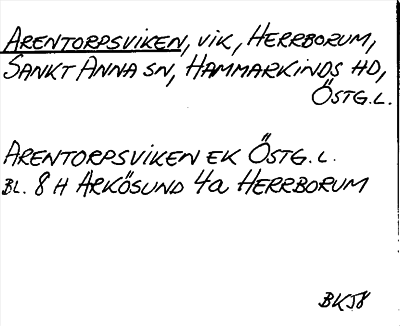 ARENTORPSVIKEN, VIK, HERRBORUM,
SANKT ANNA SN, HAMMARKINDS HD,
ÖSTG.L.
ARENTORPSVIKEN EK ÖSTG.L.
BL. 8 H ARKÖSUND 4a HERRBORUM
BKJ8